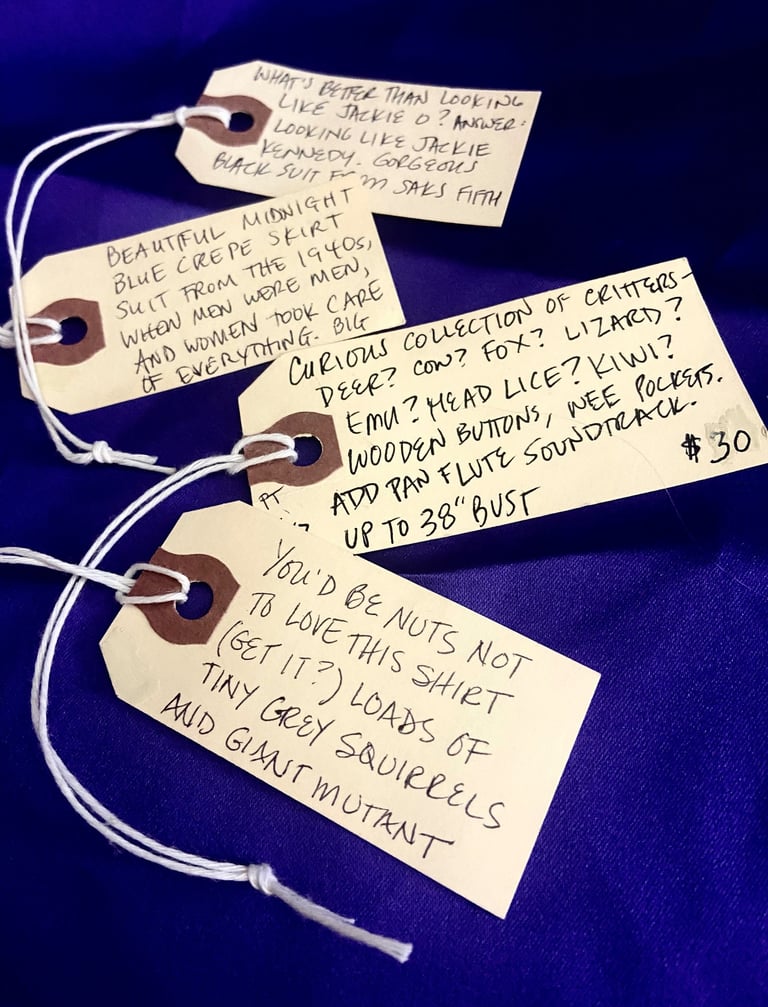 WHAT'S BETTER THAN LOOKING
LIKE JACKIE O? ANSWER:
LOOKING LIKE JACKIE
KENNEDY. GORGEOUS
BLACK SUIT FROM SAKS FIFTH
BEAUTIFUL MIDNIGHT
BLUE CREPE SKIRT
SUIT FROM THE 1940s,
WHEN MEN WERE MEN,
AND WOMEN TOOK CARE
OF EVERYTHING. BIG
CURIOUS COLLECTION OF CRITTERS-
DEER? COW? FOX? LIZARD?
EMU? HEAD LICE? KIWI?
WOODEN BUTTONS, WEE POCKETS.
ADD PAN FLUTE SOUNDTRACK.
$30
PT
UP TO 38" BUST
YOU'D BE NUTS NOT
TO LOVE THIS SHIRT
(GET IT?) LOADS OF
TINY GREY SQUIRRELS
AND GIANT MUTANT